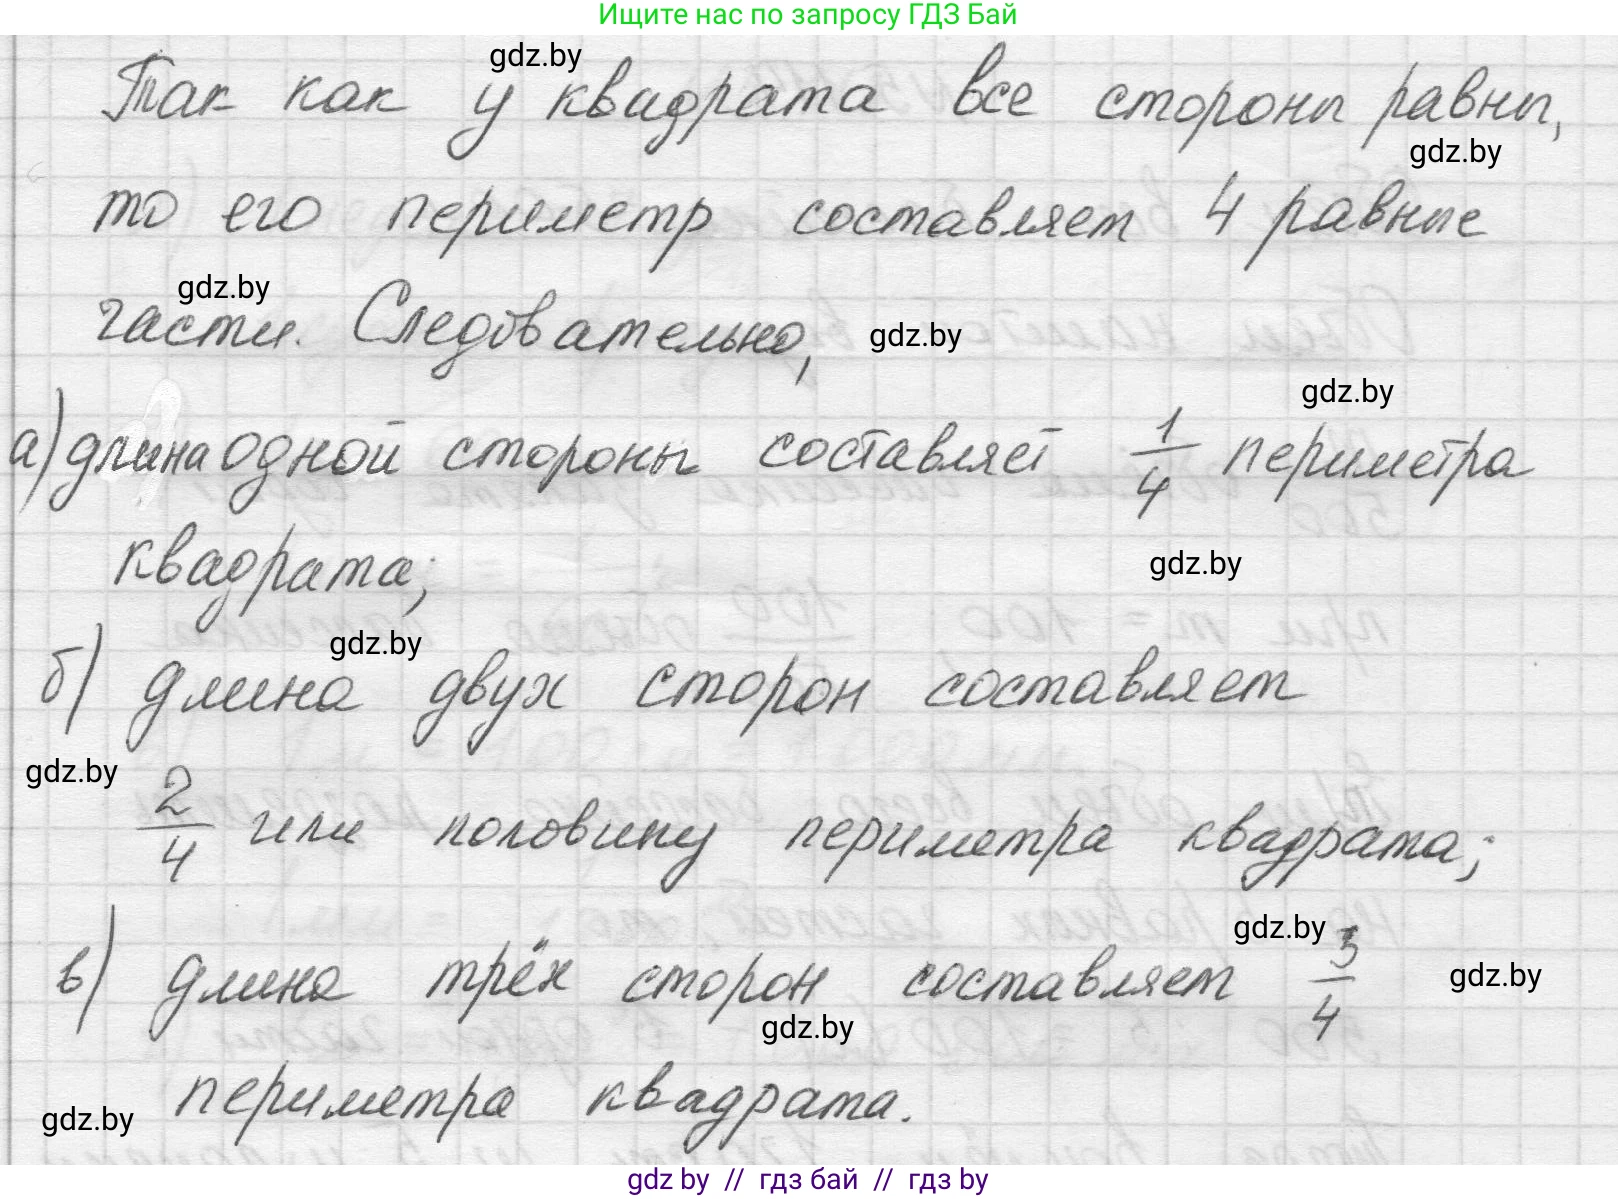 Ищите нас по запросу ГДЗ Бай
gdz.by
Так как у квадрата все стороны равны,
gdz.by
то его периметр составляет 4 равные
gdz.by
части. Следовательно,
gdz.by
gdz.by
а) длина одной стороны составляет 1/4 периметра
квадрата;
gdz.by
gdz.by
б) длина двух сторон составляет
gdz.by
2/4 или половину периметра квадрата;
gdz.by
в) длина трёх сторон составляет 3/4
gdz.by
gdz.by
периметра квадрата.
gdz.by
gdz by // гдз бай // gdz by